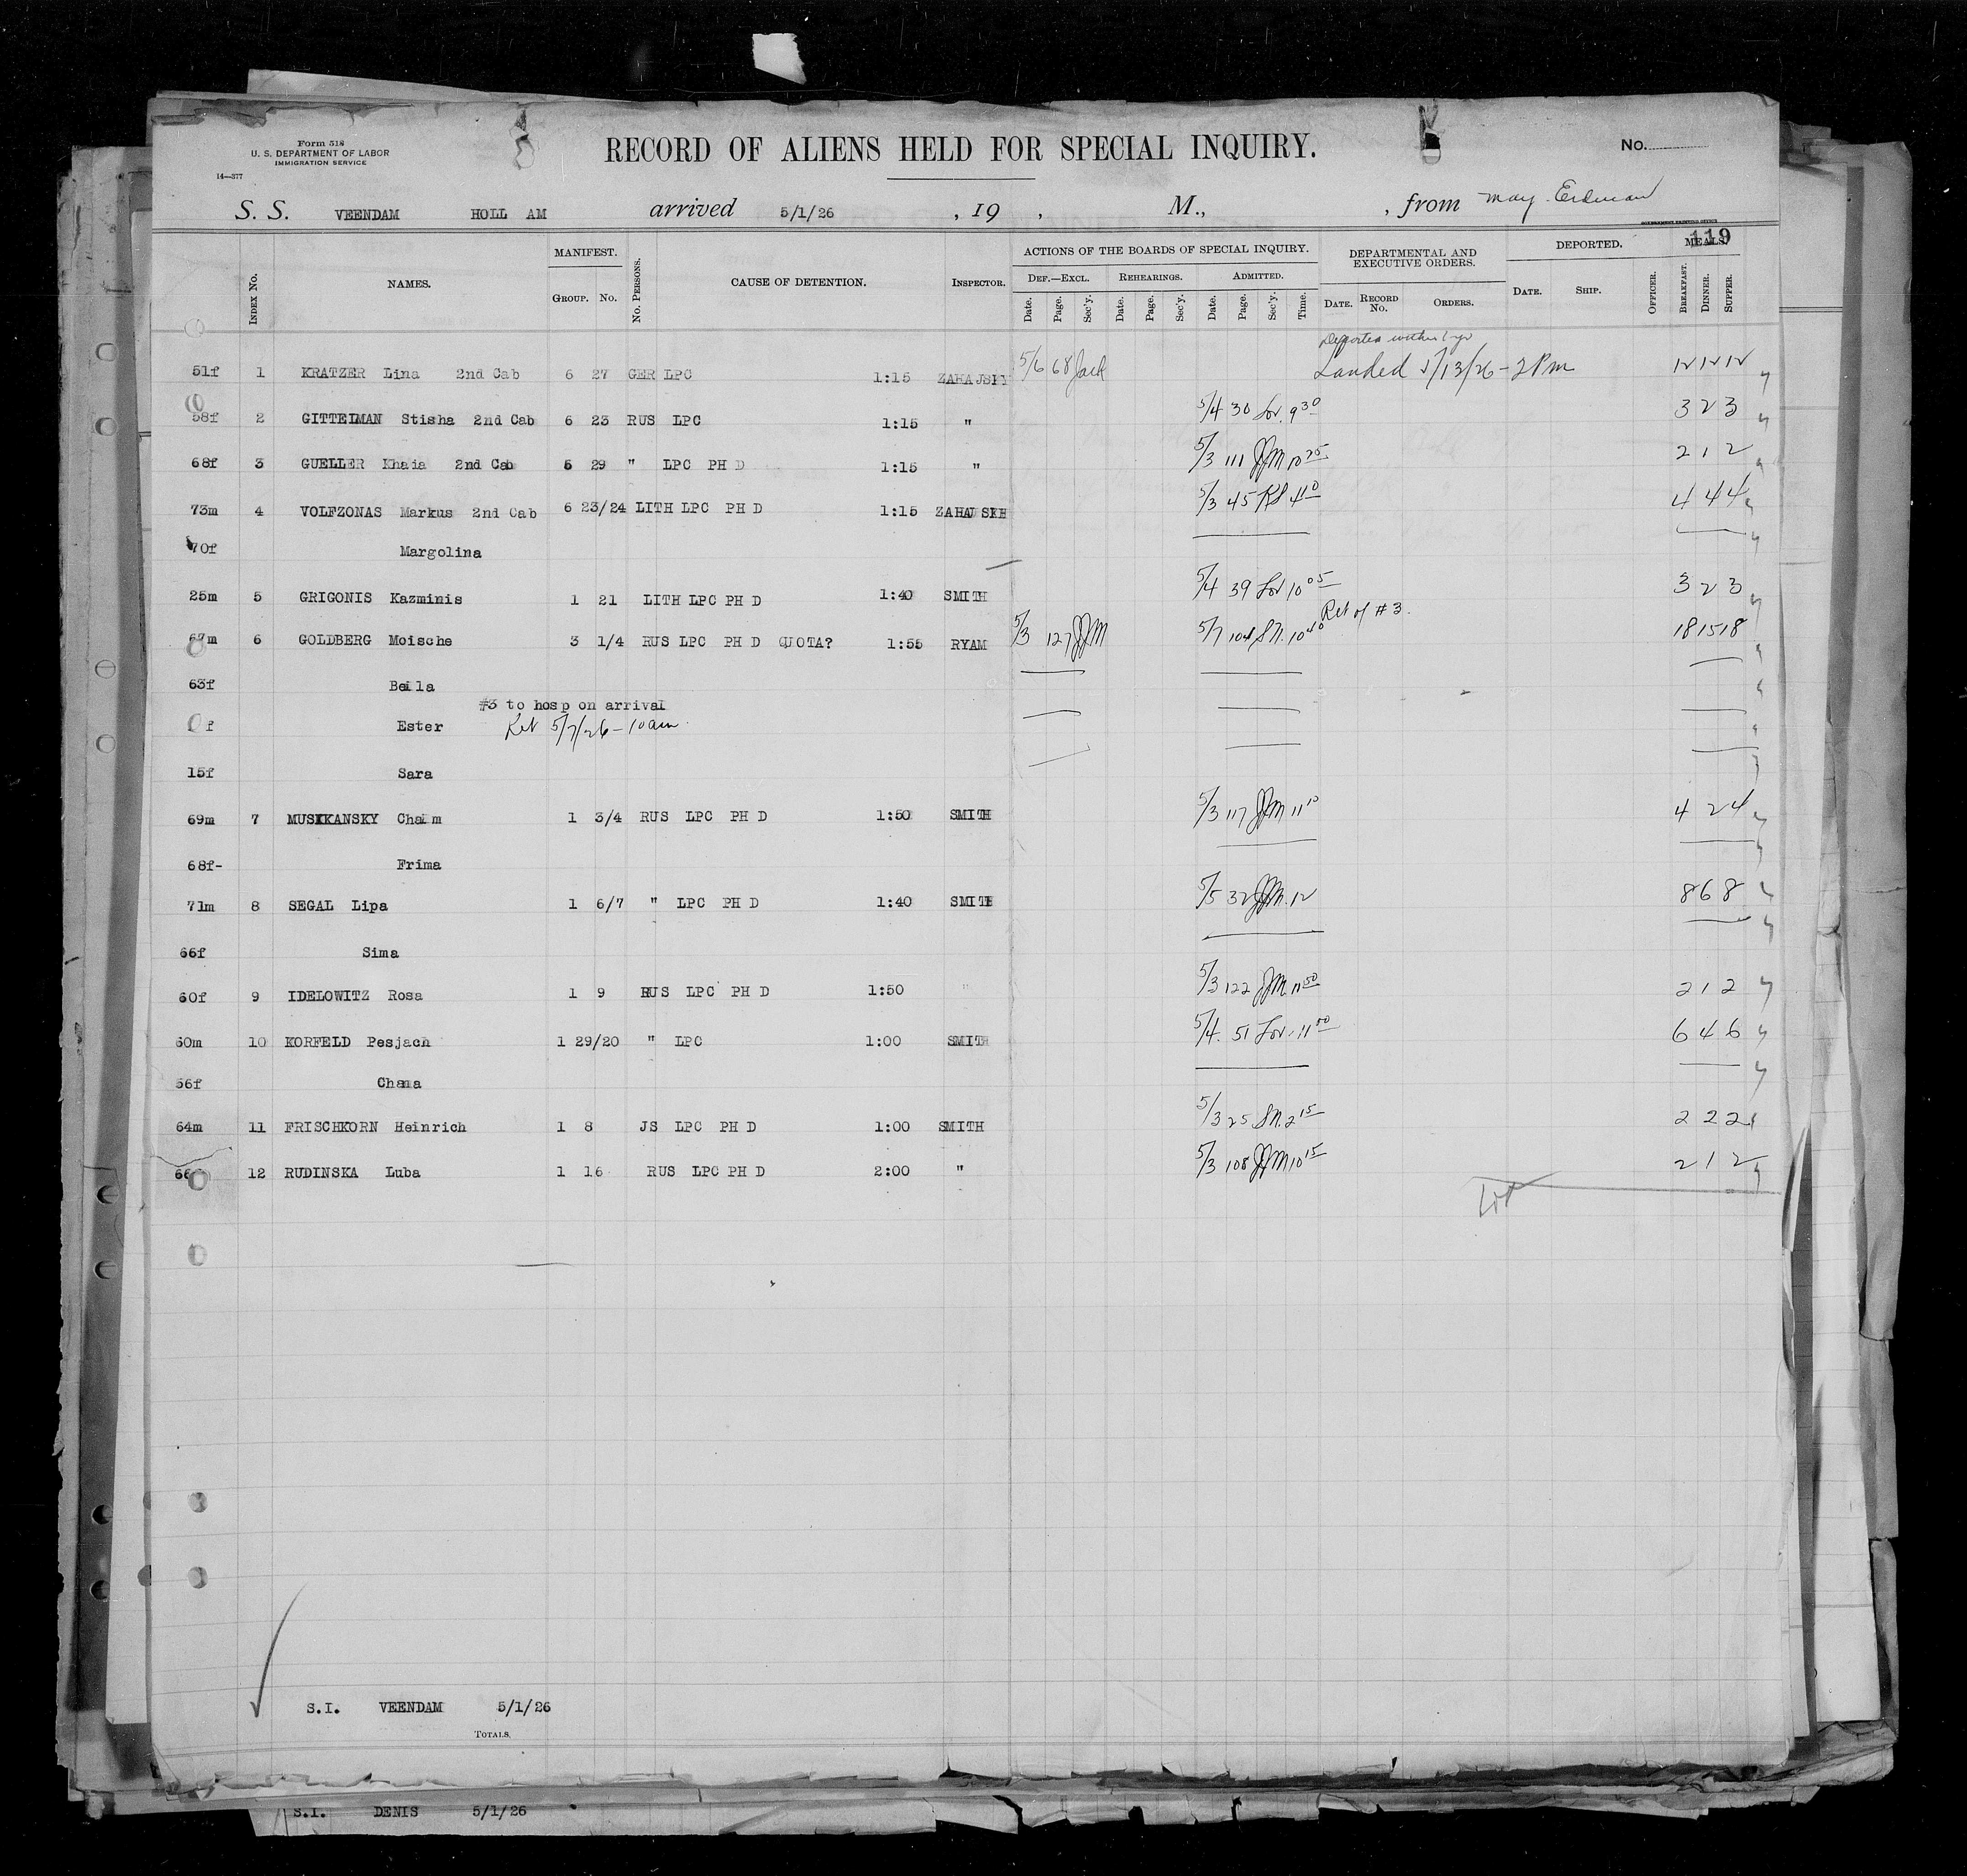 Form 518
U. S. DEPARTMENT OF LABOR
IMMIGRATION SERVICE
14—377
RECORD OF ALIENS HELD FOR SPECIAL INQUIRY.
No.
S. S. VEENDAM HOLL AM arrived 5/1/26 , 19 , M., , from May Erdman
GOVERNMENT PRINTING OFFICE
119
INDEX NO. NAMES. MANIFEST. GROUP. NO. NO. PERSONS. CAUSE OF DETENTION. INSPECTOR. ACTIONS OF THE BOARDS OF SPECIAL INQUIRY. DEPARTMENTAL AND EXECUTIVE ORDERS. DEPORTED. MEALS.
DEF.—EXCL. REHEARINGS. ADMITTED.
Date. Page. Sec'y. Date. Page. Sec'y. Date. Page. Sec'y. Time. DATE. RECORD No. ORDERS. DATE. SHIP. OFFICER. BREAKFAST. DINNER. SUPPER.
51f 1 KRATZER Lina 2nd Cab 6 27 GER LPC 1:15 ZAHAJSKY 5/6 68 Landed 5/13/26 - 2 Pm 12 12 12
58f 2 GITTELMAN Stisha 2nd Cab 6 23 RUS LPC 1:15 " 5/4 30 Lov. 9 30 3 2 3
68f 3 GUELLER Khaia 2nd Cab 6 29 " LPC PH D 1:15 " 5/3 111 JJM 10 25 2 1 2
73m 4 VOLFZONAS Markus 2nd Cab 6 23/24 LITH LPC PH D 1:15 5/3 45 4 4 4
70f Margolina
25m 5 GRIGONIS Kazminis 1 21 LITH LPC PH D 1:40 SMITH 5/4 39 Lov 10 05 3 2 3
67m 6 GOLDBERG Moische 3 1/4 RUS LPC PH D QUOTA? 1:55 RYAM 5/3 127 JJM 5/7 104 SN. 10 40 Ret of #3. 18 15 18
63f Beila
#3 to hosp on arrival
f Ester Ret 5/7/26 - 10 am.
15f Sara
69m 7 MUSIKANSKY Chaim 1 3/4 RUS LPC PH D 1:50 SMITH 5/3 117 JJM 11 10 4 2 4
68f- Frima
71m 8 SEGAL Lipa 1 6/7 " LPC PH D 1:40 SMITH 5/5 32 JJM. 12 8 6 8
66f Sima
60f 9 IDELOWITZ Rosa 1 9 RUS LPC PH D 1:50 " 5/3 122 JJM 11 50 2 1 2
60m 10 KORFELD Pesjach 1 29/20 " LPC 1:00 SMITH 5/4. 51 Lov. 11 50 6 4 6
56f Chana
64m 11 FRISCHKORN Heinrich 1 8 JS LPC PH D 1:00 SMITH 5/3 25 SN. 2 15 2 2 2
66 12 RUDINSKA Luba 1 16 RUS LPC PH D 2:00 " 5/3 108 JJM 10 15 2 1 2
S.I. VEENDAM 5/1/26
TOTALS.
S.I. DENIS 5/1/26